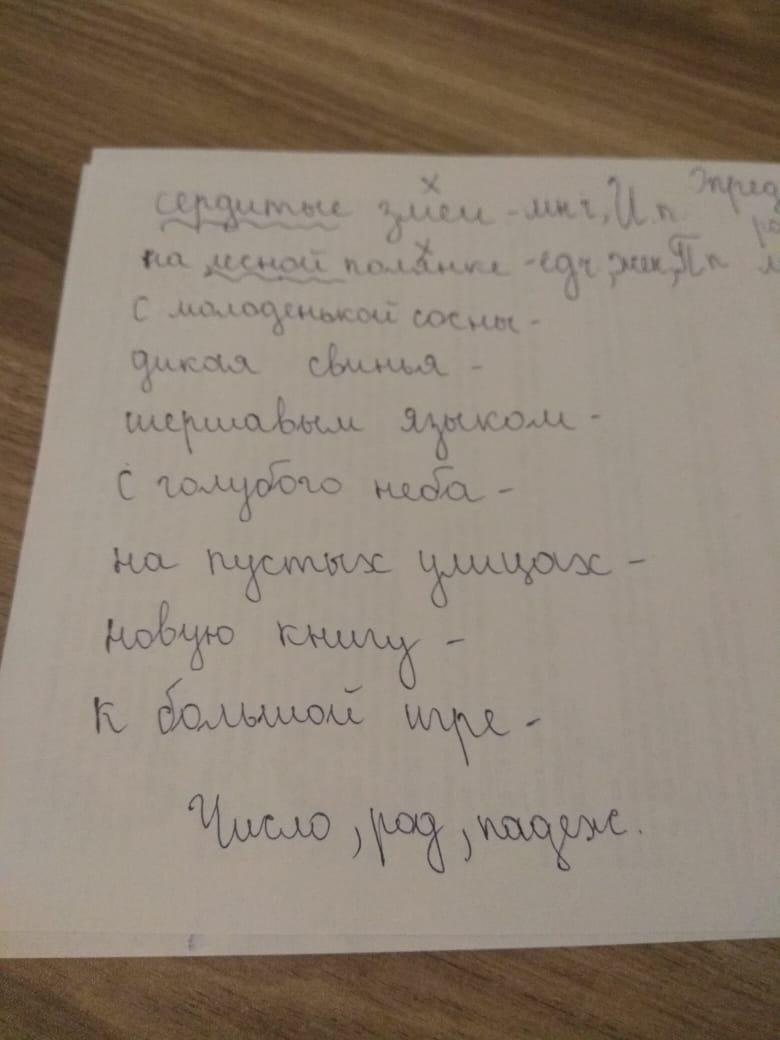 сердитые змеи - мн ч, И п
на лесной полянке - ед ч, жен, П п
с молоденькой сосны -
дикая свинья -
шершавым языком -
с голубого неба -
на пустых улицах -
новую книгу -
к большой игре -
Число, род, падеж.